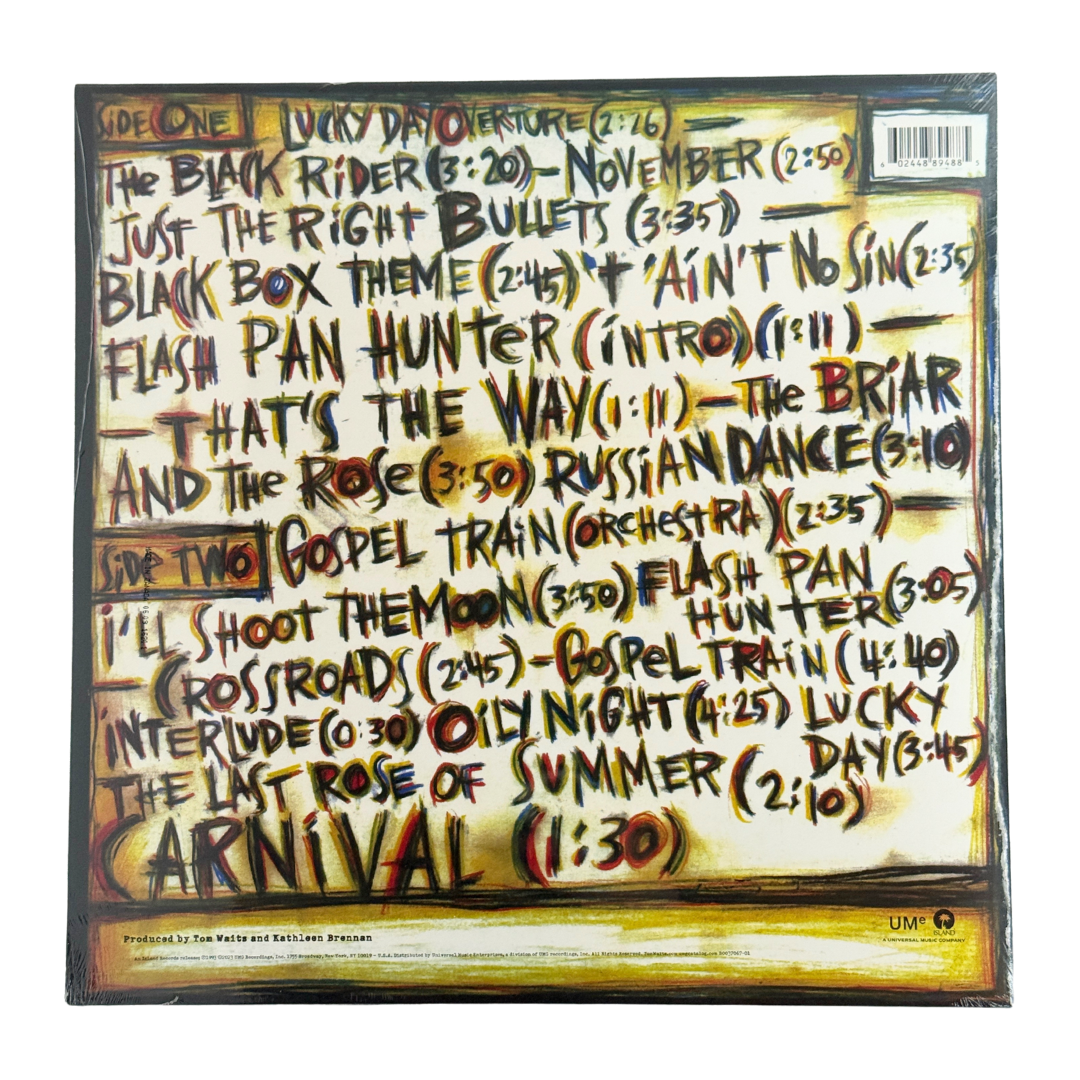 SiDE ONE LUCKY DAY OVERTURE (2:26) —
The BLACK RiDER (3:20) — NOVEMBER (2:50)
JUST THE RiGHt BULLETS (3:35) —
BLACK BOX THEME (2:45) 't 'AiN'T No SiN (2:35)
FLASH PAN HUNTeR (iNTRO) (1:11) —
— THAT'S THE WAY (1:11) — The BRiAR
AND The RoSe (3:50) RUSSiAN DANCE (3:10)
SiDe TWO GOSPEL TRAiN (ORCHeStRA) (2:35) —
i'LL SHOOT THE MOON (3:50) FLASH PAN HUNTER (3:05)
— CROSSROADS (2:45) — GOSPeL TRAiN (4:40)
iNTERLUDE (0:30) OiLY NiGHT (4:25) LUCKY DAY (3:45)
THE LAST ROSE OF SUMMER (2:10)
CARNiVAL (1:30)
6 02448 89488 5
Produced by Tom Waits and Kathleen Brennan
UMe ISLAND
A UNIVERSAL MUSIC COMPANY